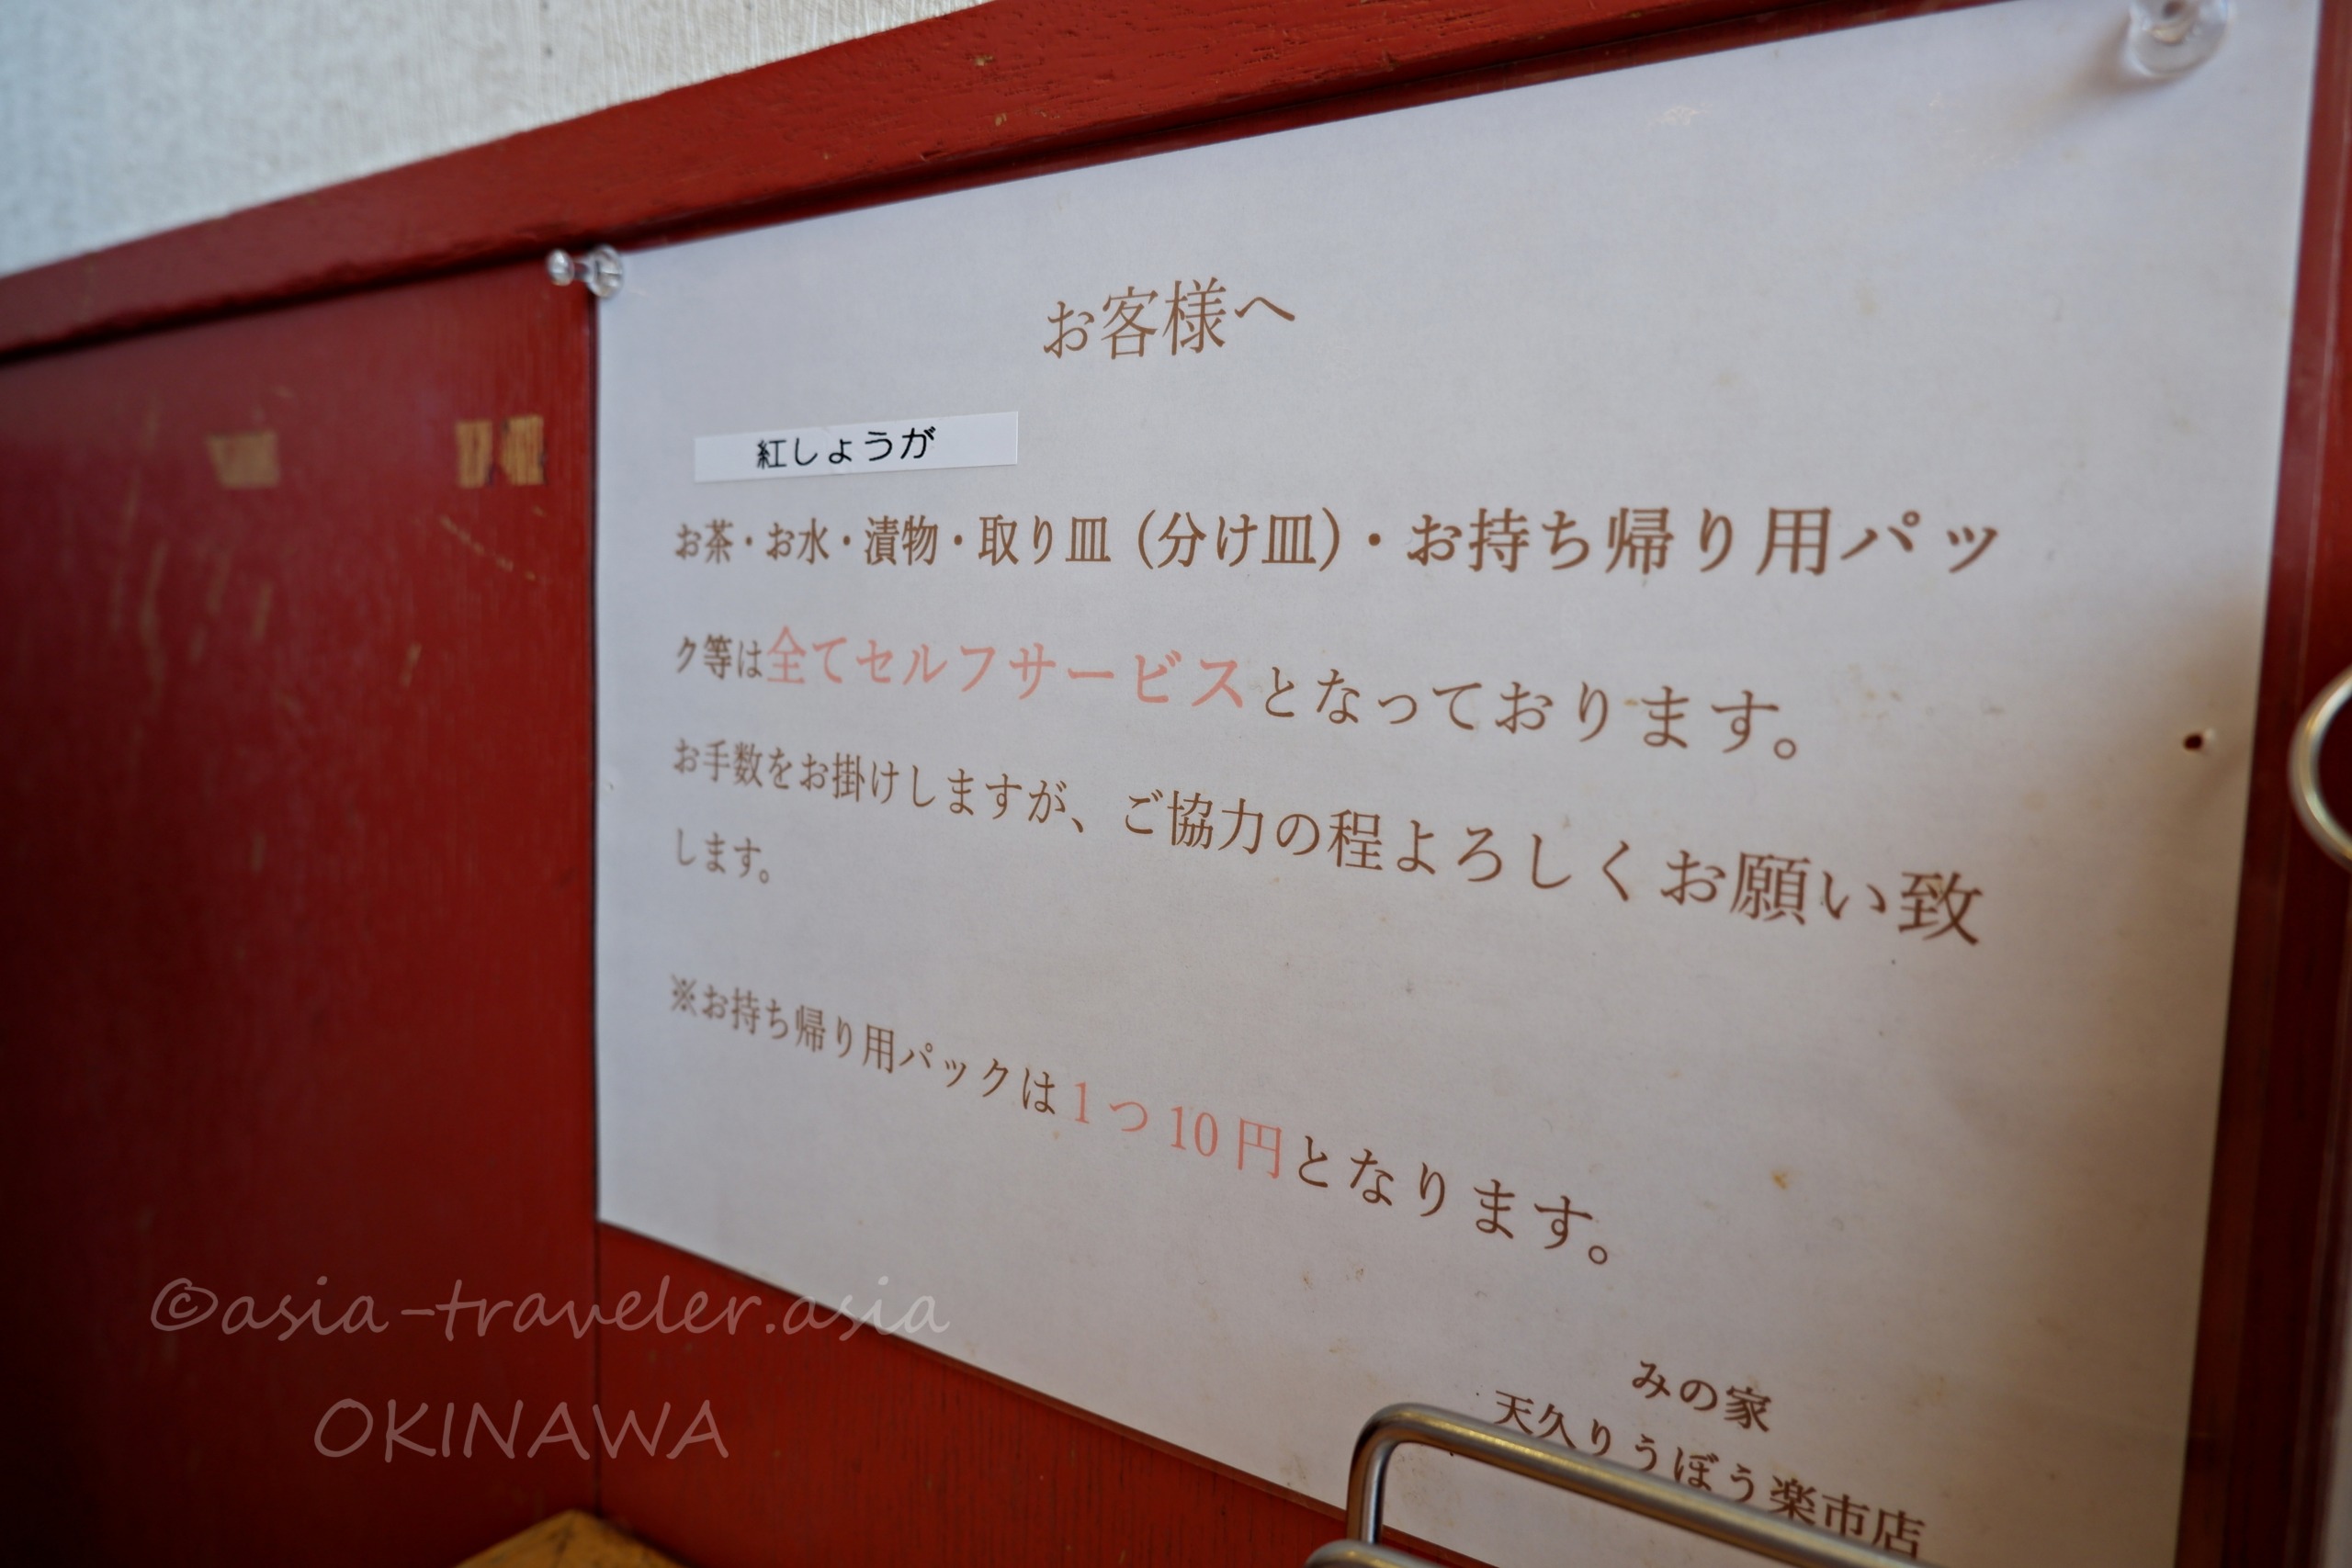 お客様へ
紅しょうが
お茶・お水・漬物・取り皿（分け皿）・お持ち帰り用パッ
ク等は全てセルフサービスとなっております。
お手数をお掛けしますが、ご協力の程よろしくお願い致
します。
※お持ち帰り用パックは1つ10円となります。
みの家
天久りうぼう楽市店
©asia-traveler.asia
OKINAWA